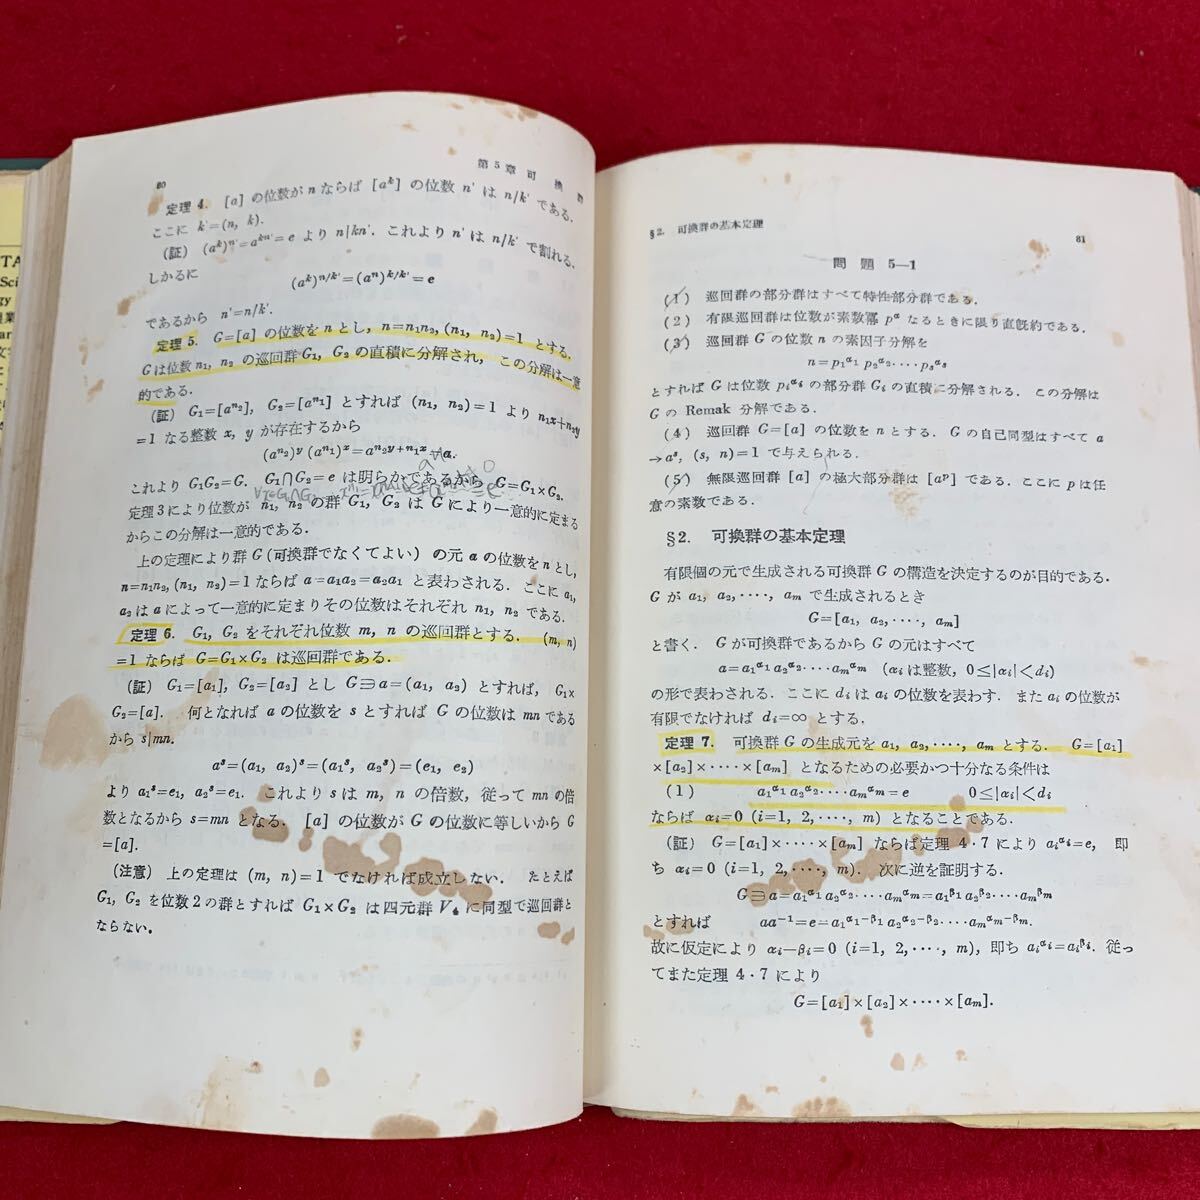 80
第5章 可換群
定理 4. [a] の位数が n ならば [aᵏ] の位数 n' は n/k' である.
ここに k'=(n, k).
(証) (aᵏ)ⁿ'=aᵏⁿ'=e より n|kn'. これより n' は n/k' で割れる.
しかるに
(aᵏ)ⁿ/ᵏ'=(aⁿ)ᵏ/ᵏ'=e
であるから n'=n/k'.
定理 5. G=[a] の位数を n とし, n=n₁n₂, (n₁, n₂)=1 とする.
G は位数 n₁, n₂ の巡回群 G₁, G₂ の直積に分解され, この分解は一意
的である.
(証) G₁=[aⁿ²], G₂=[aⁿ¹] とすれば (n₁, n₂)=1 より n₁x+n₂y
=1 なる整数 x, y が存在するから
(aⁿ²)ʸ (aⁿ¹)ˣ=aⁿ²ʸ⁺ⁿ¹ˣ=a.
これより G₁G₂=G. G₁∩G₂=e は明らかであるから G=G₁×G₂.
定理3により位数が n₁, n₂ の群 G₁, G₂ は G により一意的に定まる
からこの分解は一意的である.
上の定理により群 G (可換群でなくてよい) の元 a の位数を n とし,
n=n₁n₂, (n₁, n₂)=1 ならば a=a₁a₂=a₂a₁ と表わされる. ここに a₁,
a₂ は a によって一意的に定まりその位数はそれぞれ n₁, n₂ である.
定理 6. G₁, G₂ をそれぞれ位数 m, n の巡回群とする. (m, n)
=1 ならば G=G₁×G₂ は巡回群である.
(証) G₁=[a₁], G₂=[a₂] とし G∋a=(a₁, a₂) とすれば, G₁×
G₂=[a]. 何となれば a の位数を s とすれば G の位数は mn である
から s|mn.
aˢ=(a₁, a₂)ˢ=(a₁ˢ, a₂ˢ)=(e₁, e₂)
より a₁ˢ=e₁, a₂ˢ=e₁. これより s は m, n の倍数, 従って mn の倍
数となるから s=mn となる. [a] の位数が G の位数に等しいから G
=[a].
(注意) 上の定理は (m, n)=1 でなければ成立しない. たとえば
G₁, G₂ を位数2の群とすれば G₁×G₂ は四元群 V₄ に同型で巡回群と
ならない.
§2. 可換群の基本定理
81
問題 5—1
(1) 巡回群の部分群はすべて特性部分群である.
(2) 有限巡回群は位数が素数冪 pᵅ なるときに限り直既約である.
(3) 巡回群 G の位数 n の素因子分解を
n=p₁ᵅ¹ p₂ᵅ²‥‥pₛᵅˢ
とすれば G は位数 pᵢᵅⁱ の部分群 Gᵢ の直積に分解される. この分解は
G の Remak 分解である.
(4) 巡回群 G=[a] の位数を n とする. G の自己同型はすべて a
→aˢ, (s, n)=1 で与えられる.
(5) 無限巡回群 [a] の極大部分群は [aᵖ] である. ここに p は任
意の素数である.
§2. 可換群の基本定理
有限個の元で生成される可換群 G の構造を決定するのが目的である.
G が a₁, a₂,‥‥, aₘ で生成されるとき
G=[a₁, a₂,‥‥, aₘ]
と書く. G が可換群であるから G の元はすべて
a=a₁ᵅ¹ a₂ᵅ²‥‥aₘᵅᵐ (αᵢ は整数, 0≤|αᵢ|<dᵢ)
の形で表わされる. ここに dᵢ は aᵢ の位数を表わす. また aᵢ の位数が
有限でなければ dᵢ=∞ とする.
定理 7. 可換群 G の生成元を a₁, a₂,‥‥, aₘ とする. G=[a₁]
×[a₂]×‥‥×[aₘ] となるための必要かつ十分なる条件は
(1) a₁ᵅ¹ a₂ᵅ²‥‥aₘᵅᵐ=e 0≤|αᵢ|<dᵢ
ならば αᵢ=0 (i=1, 2,‥‥, m) となることである.
(証) G=[a₁]×‥‥×[aₘ] ならば定理 4・7 により aᵢᵅⁱ=e, 即
ち αᵢ=0 (i=1, 2,‥‥, m). 次に逆を証明する.
G∋a=a₁ᵅ¹ a₂ᵅ²‥‥aₘᵅᵐ=a₁ᵝ¹ a₂ᵝ²‥‥aₘᵝᵐ
とすれば aa⁻¹=e=a₁ᵅ¹⁻ᵝ¹ a₂ᵅ²⁻ᵝ²‥‥aₘᵅᵐ⁻ᵝᵐ.
故に仮定により αᵢ−βᵢ=0 (i=1, 2,‥‥, m), 即ち aᵢᵅⁱ=aᵢᵝⁱ. 従っ
てまた定理 4・7 により
G=[a₁]×[a₂]×‥‥×[aₘ].